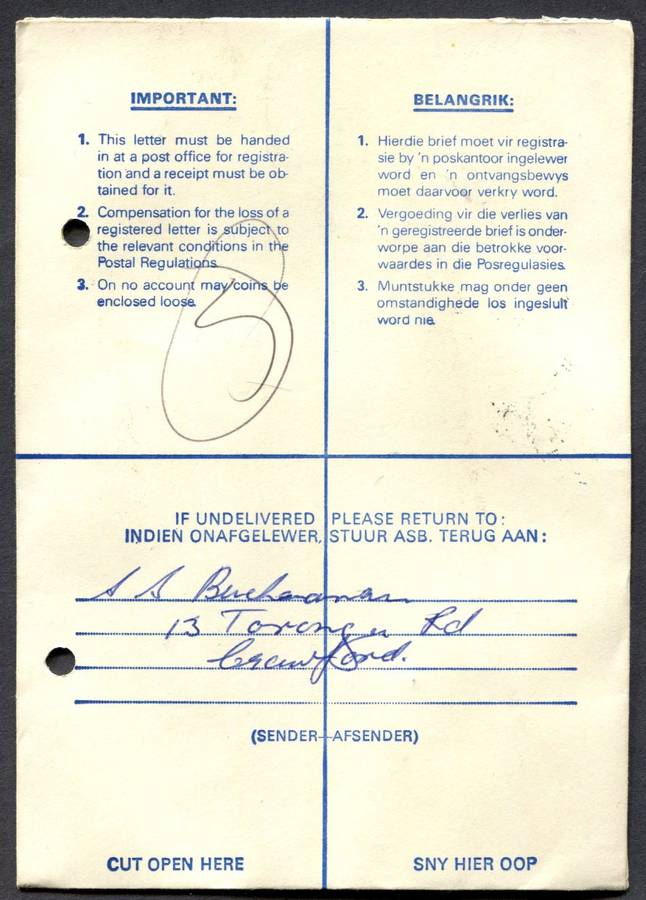 IMPORTANT:
1. This letter must be handed
in at a post office for registra-
tion and a receipt must be ob-
tained for it.
2. Compensation for the loss of a
registered letter is subject to
the relevant conditions in the
Postal Regulations.
3. On no account may coins be
enclosed loose.
BELANGRIK:
1. Hierdie brief moet vir registra-
sie by 'n poskantoor ingelewer
word en 'n ontvangsbewys
moet daarvoor verkry word.
2. Vergoeding vir die verlies van
'n geregistreerde brief is onder-
worpe aan die betrokke voor-
waardes in die Posregulasies.
3. Muntstukke mag onder geen
omstandighede los ingesluit
word nie.
IF UNDELIVERED PLEASE RETURN TO:
INDIEN ONAFGELEWER, STUUR ASB. TERUG AAN:
S Buchanan
13 Rd
Crawford.
(SENDER—AFSENDER)
CUT OPEN HERE
SNY HIER OOP